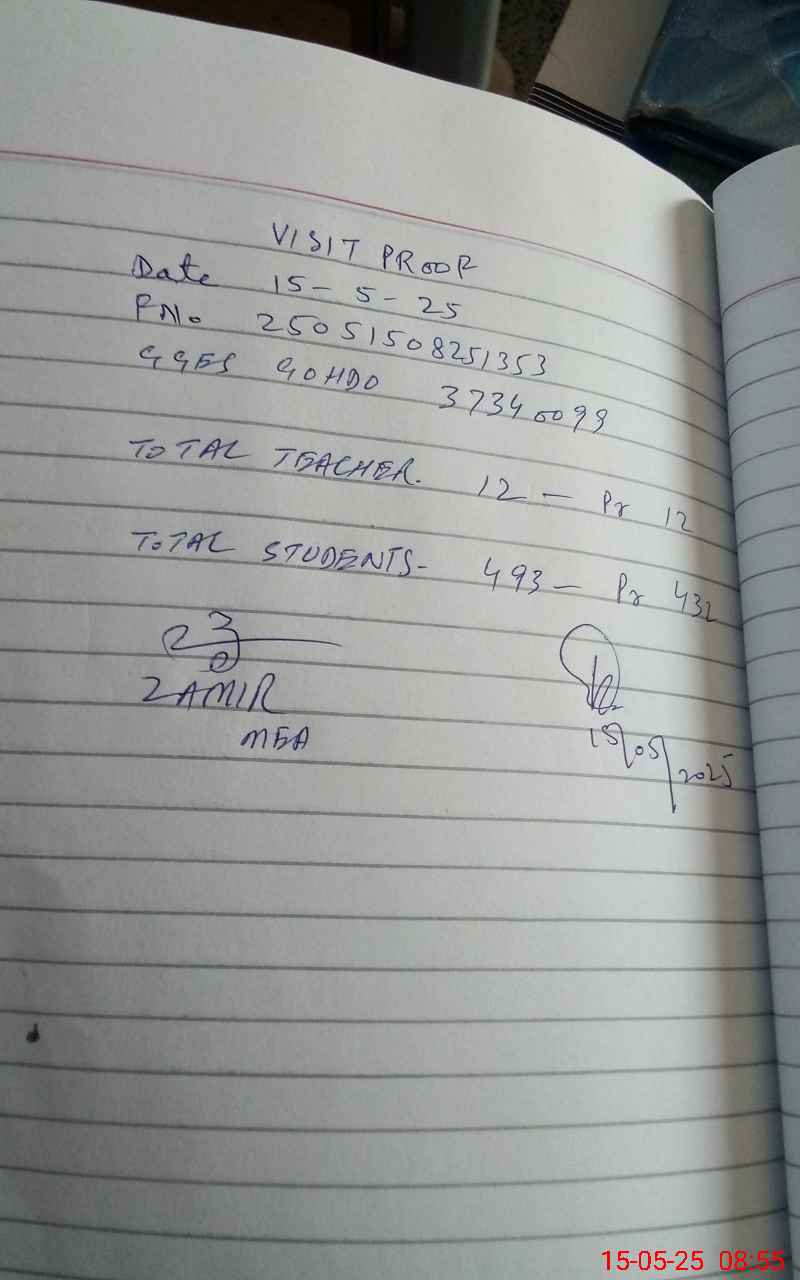 VISIT PROOF
Date 15-5-25
FNo 25051508251353
GGES GOHDO 37340099
TOTAL TEACHER. 12 - Pr 12
TOTAL STUDENTS- 493 - Pr 432
ZAMIR
MEA
15/05/2025
15-05-25 08:55